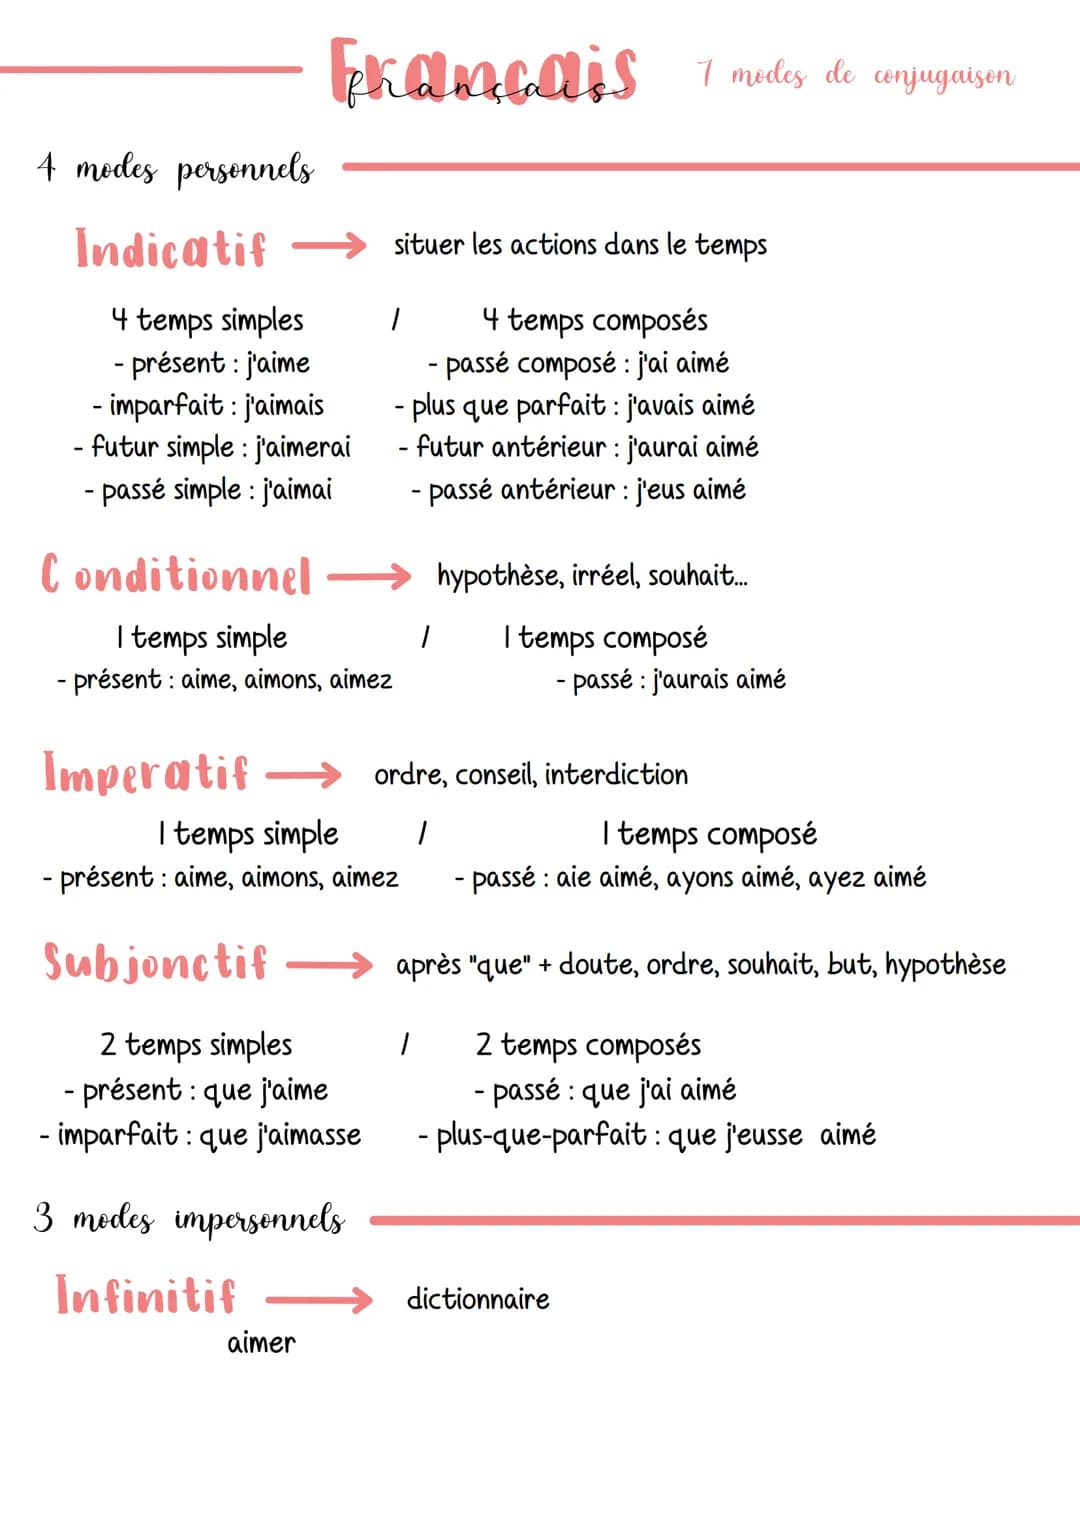 Français
français
7 modes de conjugaison
4 modes personnels
Indicatif → situer les actions dans le temps
4 temps simples / 4 temps composés
- présent : j'aime - passé composé : j'ai aimé
- imparfait : j'aimais - plus que parfait : j'avais aimé
- futur simple : j'aimerai - futur antérieur : j'aurai aimé
- passé simple : j'aimai - passé antérieur : j'eus aimé
C onditionnel → hypothèse, irréel, souhait...
1 temps simple / 1 temps composé
- présent : aime, aimons, aimez - passé : j'aurais aimé
Imperatif → ordre, conseil, interdiction
1 temps simple / 1 temps composé
- présent : aime, aimons, aimez - passé : aie aimé, ayons aimé, ayez aimé
Subjonctif → après "que" + doute, ordre, souhait, but, hypothèse
2 temps simples / 2 temps composés
- présent : que j'aime - passé : que j'ai aimé
- imparfait : que j'aimasse - plus-que-parfait : que j'eusse aimé
3 modes impersonnels
Infinitif → dictionnaire
aimer